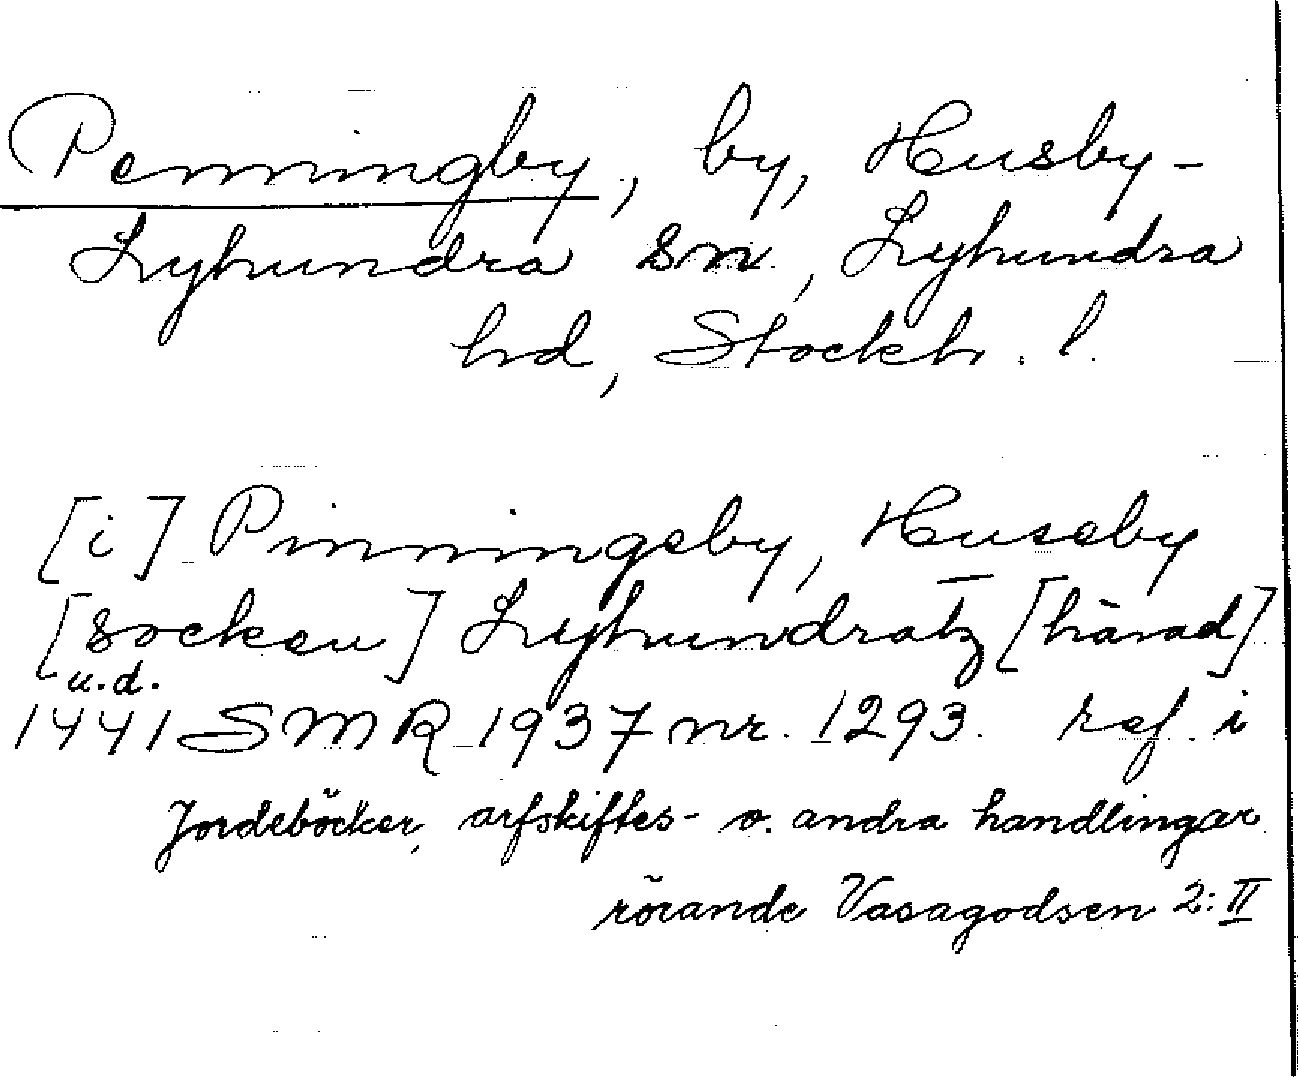 Penningby, by, Husby-
Lyhundra sn, Lyhundra
hd, Stockh. l.
[i] Pinningeby, Huseby
[socken] Lyhundratz [härad]
u.d.
1441 SMR 1937 nr. 1293. ref. i
Jordeböcker, arfskiftes- o. andra handlingar
rörande Vasagodsen 2:II